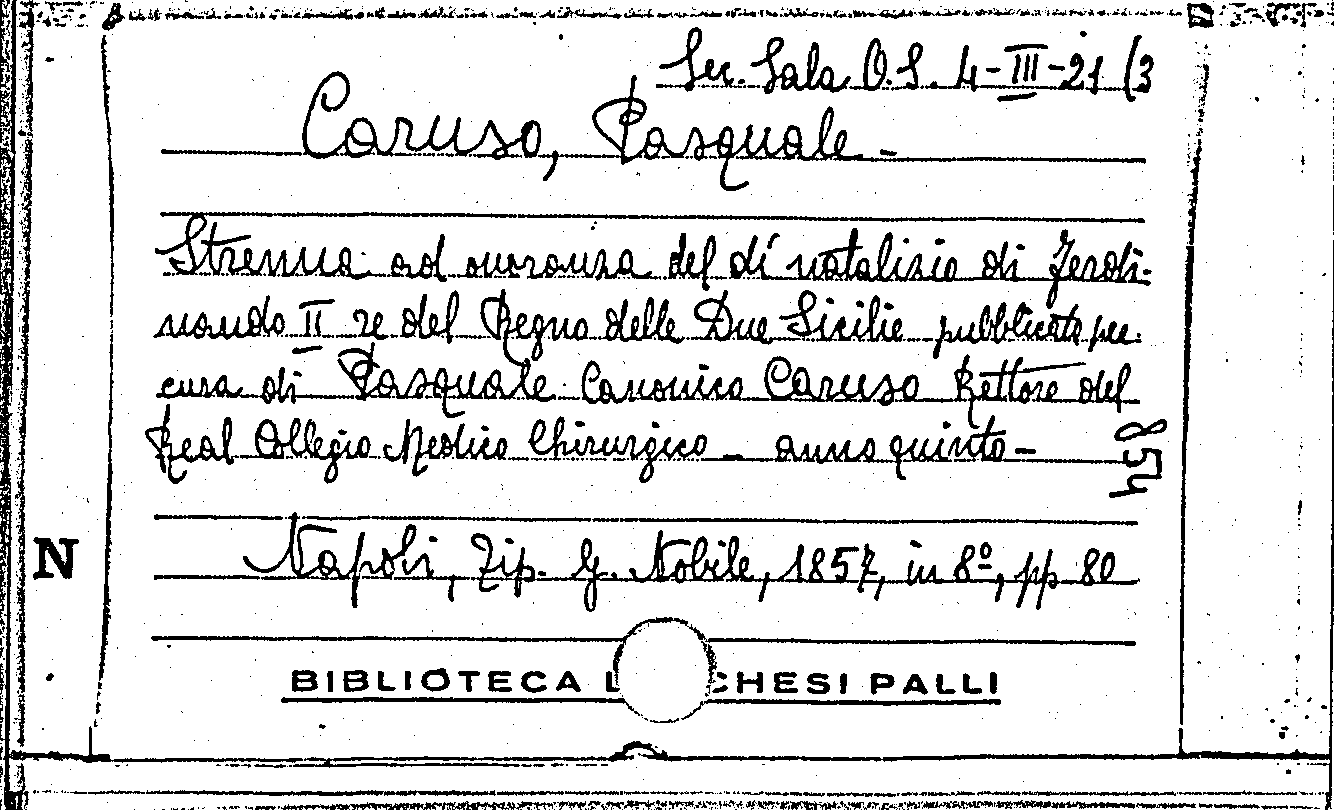 Sec. Sala O.S. 4-III-21 (3
Caruso, Pasquale -
Strenna ad onoranza del dí natalizio di Ferdi-
nando II re del Regno delle Due Sicilie pubblicata per
cura di Pasquale Canonico Caruso Rettore del
Real Collegio Medico Chirurgico - anno quinto -
854
N
Napoli, Tip. G. Nobile, 1857, in 8º, pp 80
BIBLIOTECA L CHESI PALLI